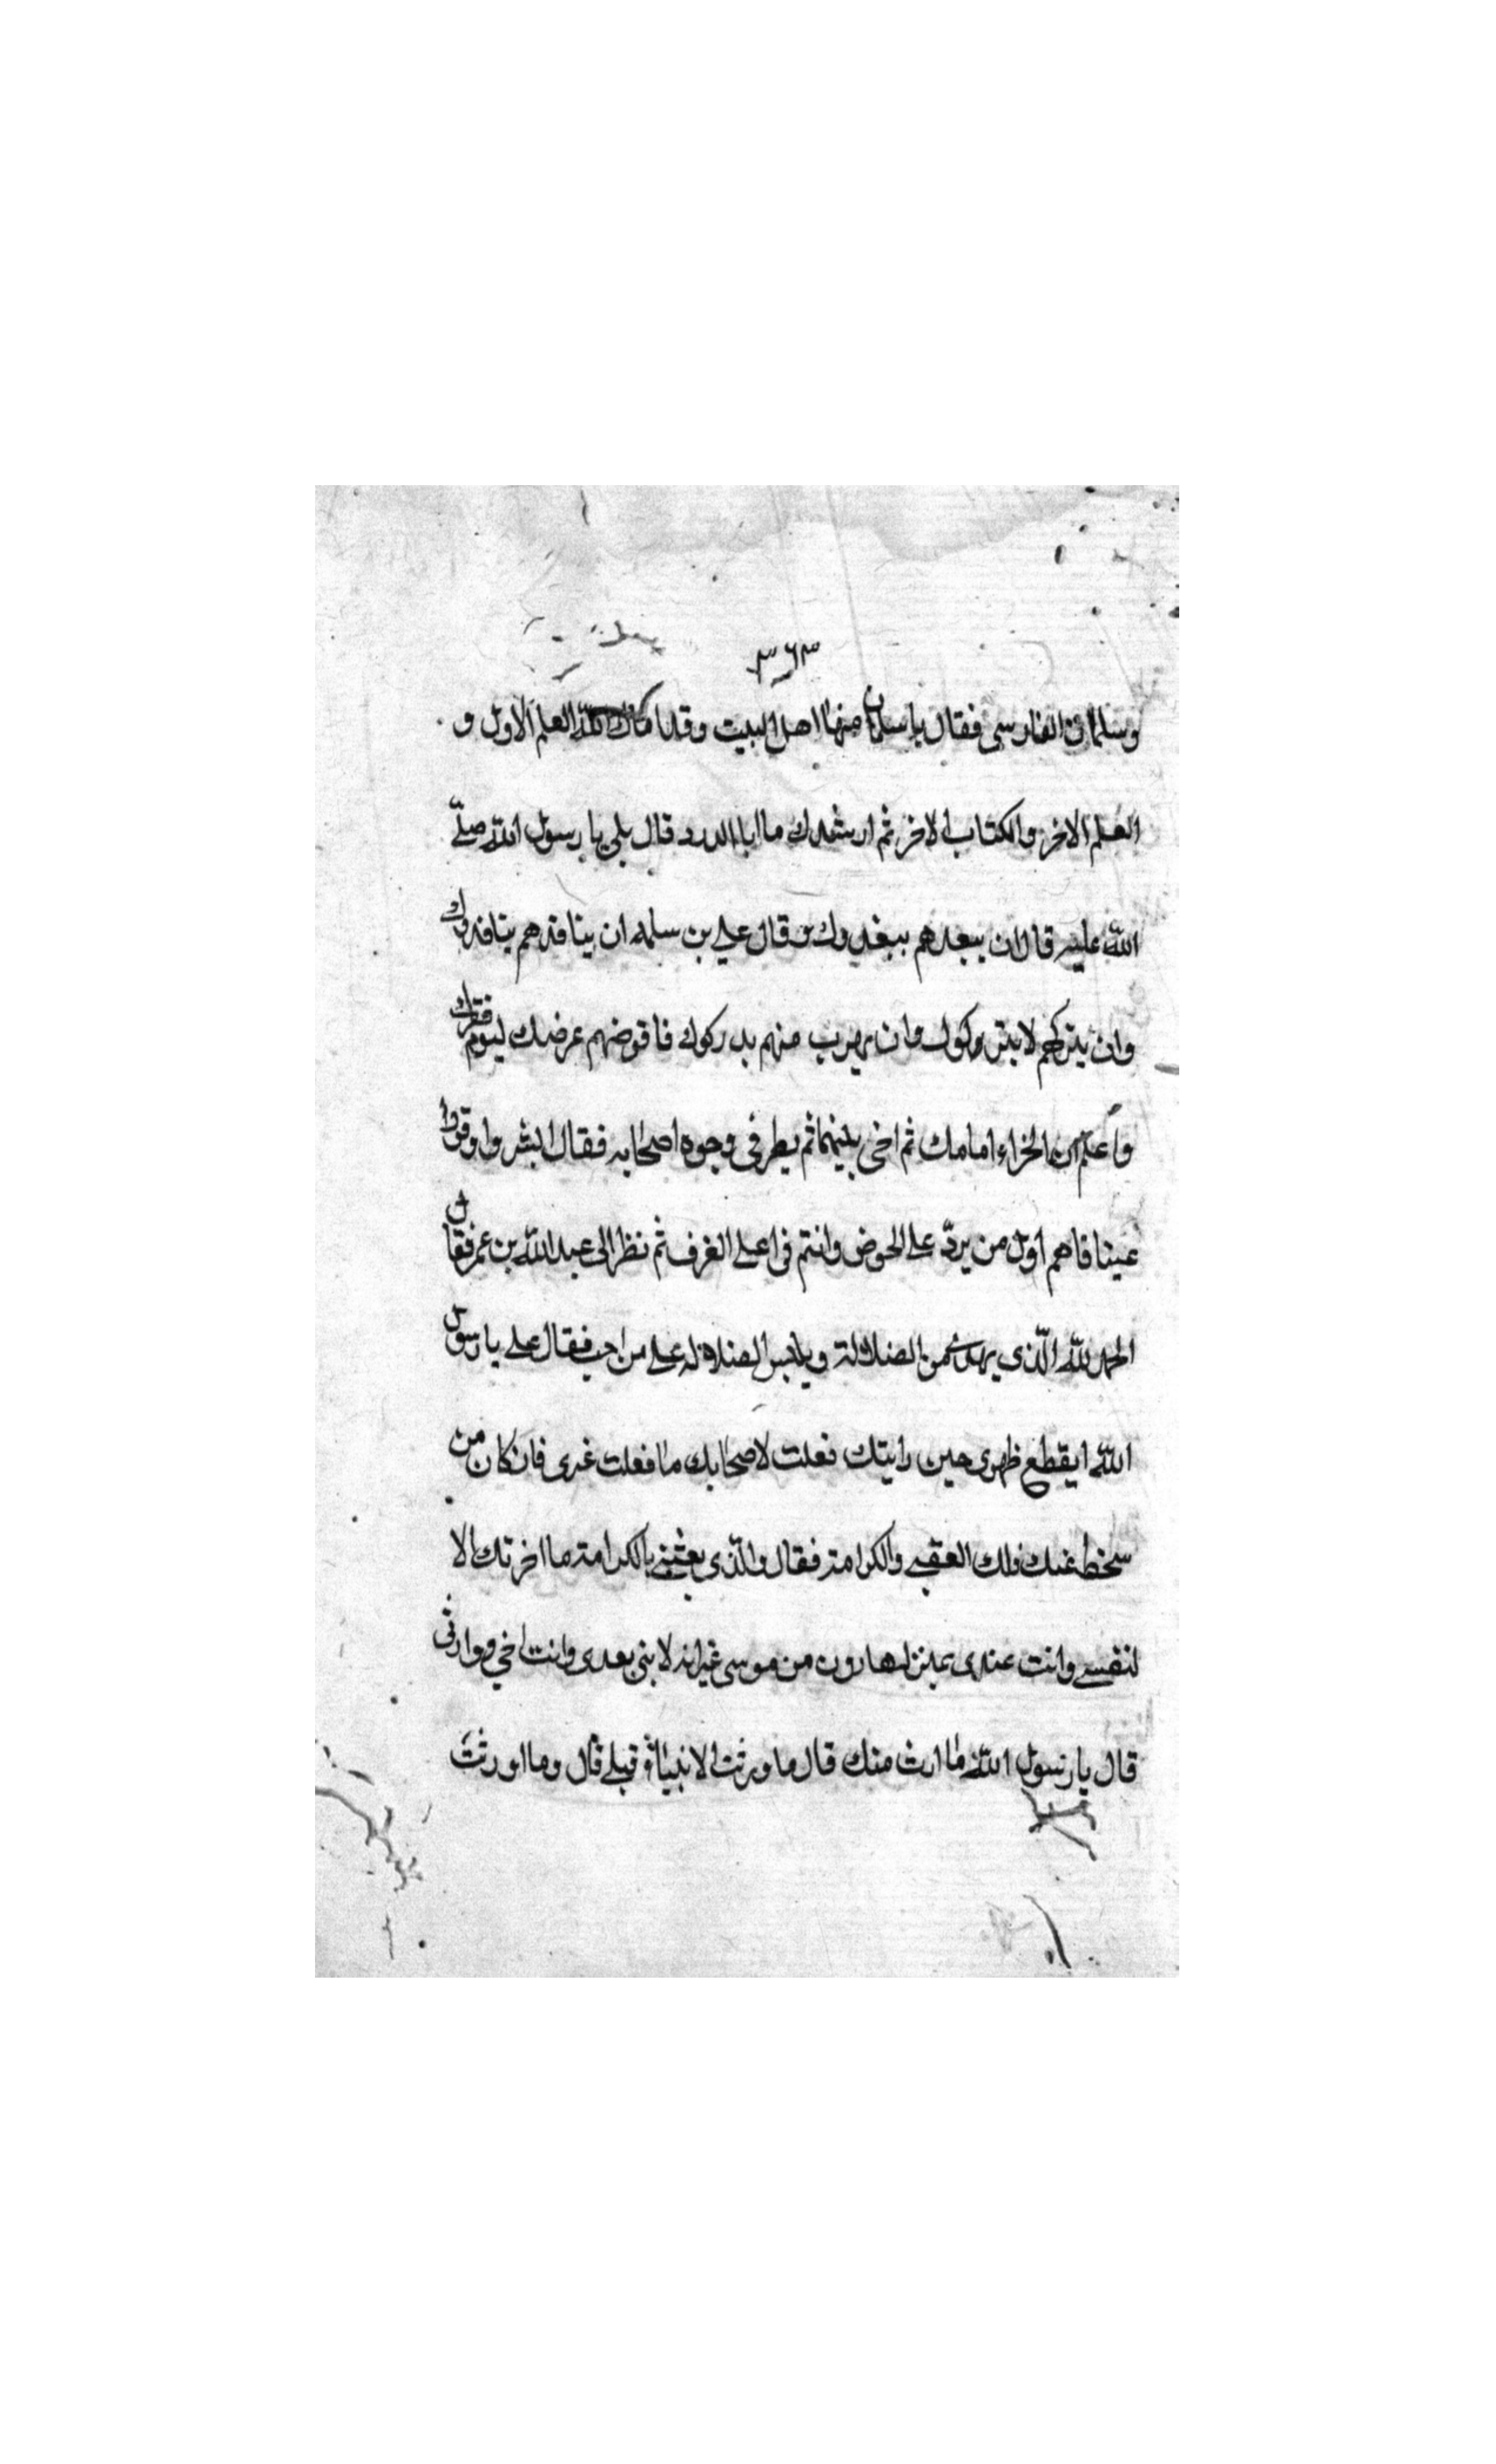 ٣٦٣
وسلمان الفارسى فقال يا سلمان منها اهل البيت وقد اتاك الله العلم الاول و
العلم الاخر والكتاب الاخر ثم ارشدك ما ابا الدرد قال بلى يا رسول الله صلّى
الله عليه قال ان ينقدهم ينقدوك قال على بن سلمه ان ينافدهم ينافدوك
وان يتركهم لا يتروكوك وان يهرب منهم يدركوك فاقرضهم عرضك ليوم فقرك
واعلم ان الجزاء امامك ثم اخى بينهما ثم نظر فى وجوه اصحابه فقال ابشروا وقروا
عينا فاهم اول من يردّ على الحوض وانتم فى اعلى الغرف ثم نظر الى عبد الله بن عمر فقال
الحمد لله الّذى يهدى من الضلالة ويلبس الضلالة على من احب فقال على يا رسول
الله ايقطع ظهرى حين رايتك فعلت لاصحابك ما فعلت غيرى فان كان من
سخط عنك فلك العقبى والكرامة فقال والّذى بعثنى بالكرامة ما اخرتك الا
لنفسى وانت عندى بمنزلة هارون من موسى غير انه لا بنى بعدى وانت اخى ووارثى
قال يا رسول الله ما ارث منك قال ما ورثت الانبياء قبلى قال وما اورثت